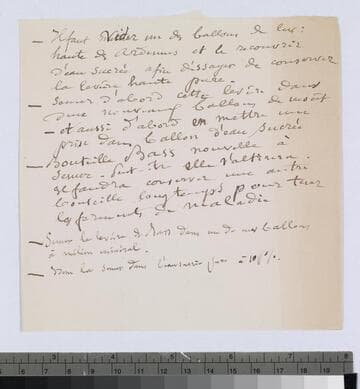 — Il faut vider un des ballons de lev:
haute de Ardennes et le recouvrir
d'eau sucrée afin d'essayer de conserver
la levûre haute pure.
— Semer d'abord cette levûre dans
deux nouveaux ballons de moût
— et aussi d'abord en mettre une
prise dans ballon d'eau sucrée
— Bouteille Bass nouvelle à
semer. Suivre si elle s'altèrera.
Il faudra conserver une autre
bouteille longtemps pour tuer
les ferments de maladie
— Semer la levûre de Bass dans un de mes ballons
à milieu minéral.
— dans l'eau sucrée pure à 10 %.